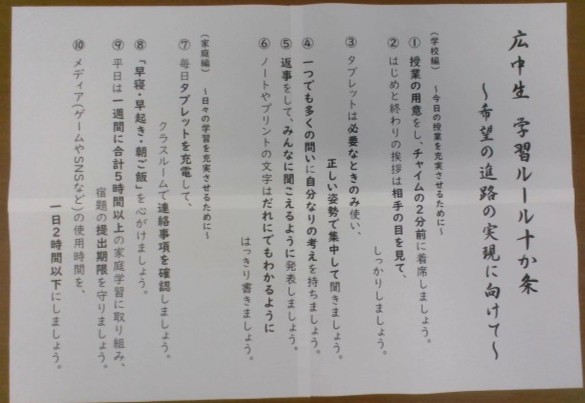 広中生 学習ルール十か条
～希望の進路の実現に向けて～
(学校編) ～今日の授業を充実させるために～
① 授業の用意をし、チャイムの2分前に着席しましょう。
② はじめと終わりの挨拶は相手の目を見て、
しっかりしましょう。
③ タブレットは必要なときのみ使い、
正しい姿勢で集中して聞きましょう。
④ 一つでも多くの問いに自分なりの考えを持ちましょう。
⑤ 返事をして、みんなに聞こえるように発表しましょう。
⑥ ノートやプリントの文字はだれにでもわかるように
はっきり書きましょう。
(家庭編) ～日々の学習を充実させるために～
⑦ 毎日タブレットを充電して、
クラスルームで連絡事項を確認しましょう。
⑧ 「早寝・早起き・朝ご飯」を心がけましょう。
⑨ 平日は一週間に合計5時間以上の家庭学習に取り組み、
宿題の提出期限を守りましょう。
⑩ メディア(ゲームやSNSなど)の使用時間を、
一日2時間以下にしましょう。